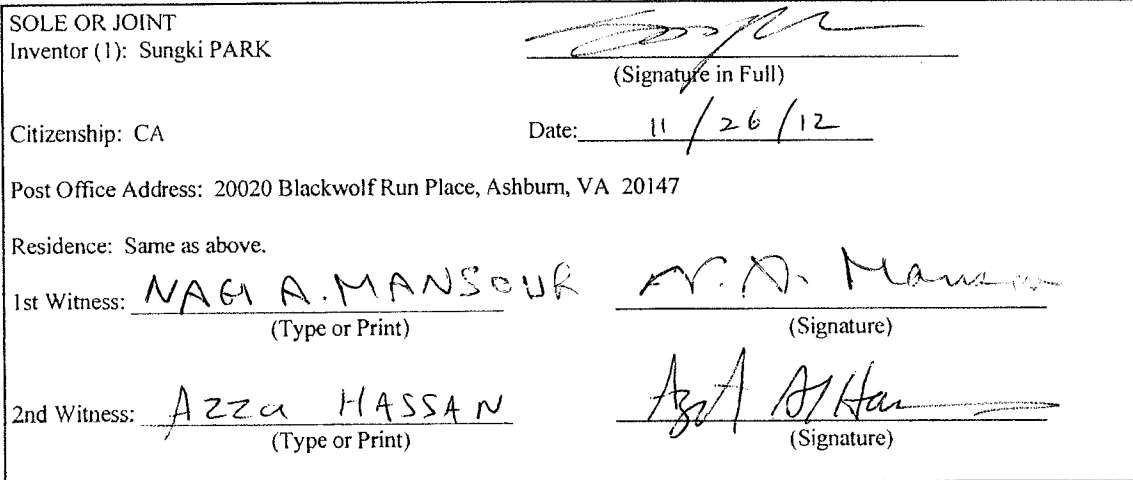 SOLE OR JOINT
Inventor (1): Sungki PARK
(Signature in Full)
Citizenship: CA Date: 11/26/12
Post Office Address: 20020 Blackwolf Run Place, Ashburn, VA 20147
Residence: Same as above.
1st Witness: NAGI A. MANSOUR N. A. Mansour
(Type or Print) (Signature)
2nd Witness: AZZa HASSAN
(Type or Print) (Signature)